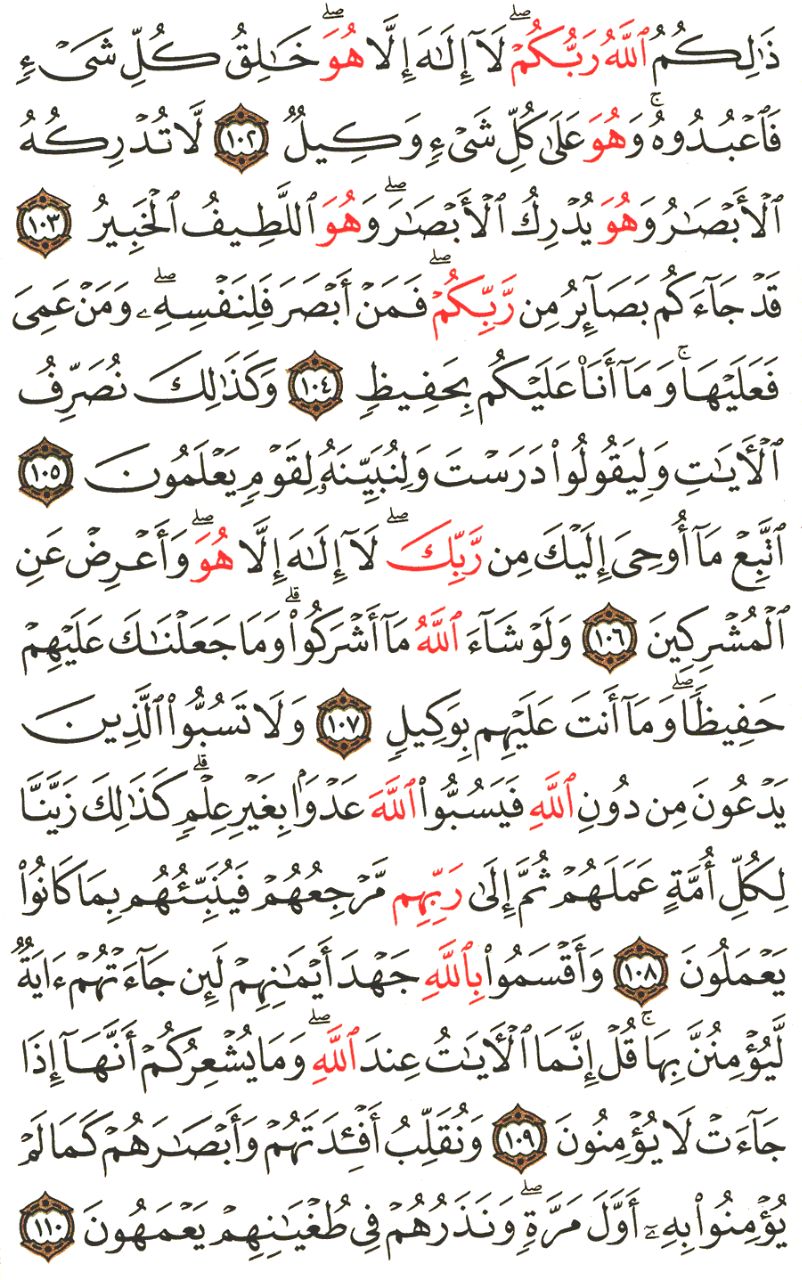 ذَٰلِكُمُ ٱللَّهُ رَبُّكُمۡۖ لَآ إِلَٰهَ إِلَّا هُوَۖ خَٰلِقُ كُلِّ شَيۡءٖ
فَٱعۡبُدُوهُۚ وَهُوَ عَلَىٰ كُلِّ شَيۡءٖ وَكِيلٞ ١٠٢ لَّا تُدۡرِكُهُ
ٱلۡأَبۡصَٰرُ وَهُوَ يُدۡرِكُ ٱلۡأَبۡصَٰرَۖ وَهُوَ ٱللَّطِيفُ ٱلۡخَبِيرُ ١٠٣
قَدۡ جَآءَكُم بَصَآئِرُ مِن رَّبِّكُمۡۖ فَمَنۡ أَبۡصَرَ فَلِنَفۡسِهِۦۖ وَمَنۡ عَمِيَ
فَعَلَيۡهَاۚ وَمَآ أَنَا۠ عَلَيۡكُم بِحَفِيظٖ ١٠٤ وَكَذَٰلِكَ نُصَرِّفُ
ٱلۡأٓيَٰتِ وَلِيَقُولُواْ دَرَسۡتَ وَلِنُبَيِّنَهُۥ لِقَوۡمٖ يَعۡلَمُونَ ١٠٥
ٱتَّبِعۡ مَآ أُوحِيَ إِلَيۡكَ مِن رَّبِّكَۖ لَآ إِلَٰهَ إِلَّا هُوَۖ وَأَعۡرِضۡ عَنِ
ٱلۡمُشۡرِكِينَ ١٠٦ وَلَوۡ شَآءَ ٱللَّهُ مَآ أَشۡرَكُواْۗ وَمَا جَعَلۡنَٰكَ عَلَيۡهِمۡ
حَفِيظٗاۖ وَمَآ أَنتَ عَلَيۡهِم بِوَكِيلٖ ١٠٧ وَلَا تَسُبُّواْ ٱلَّذِينَ
يَدۡعُونَ مِن دُونِ ٱللَّهِ فَيَسُبُّواْ ٱللَّهَ عَدۡوَۢا بِغَيۡرِ عِلۡمٖۗ كَذَٰلِكَ زَيَّنَّا
لِكُلِّ أُمَّةٍ عَمَلَهُمۡ ثُمَّ إِلَىٰ رَبِّهِم مَّرۡجِعُهُمۡ فَيُنَبِّئُهُم بِمَا كَانُواْ
يَعۡمَلُونَ ١٠٨ وَأَقۡسَمُواْ بِٱللَّهِ جَهۡدَ أَيۡمَٰنِهِمۡ لَئِن جَآءَتۡهُمۡ ءَايَةٞ
لَّيُؤۡمِنُنَّ بِهَاۚ قُلۡ إِنَّمَا ٱلۡأٓيَٰتُ عِندَ ٱللَّهِۖ وَمَا يُشۡعِرُكُمۡ أَنَّهَآ إِذَا
جَآءَتۡ لَا يُؤۡمِنُونَ ١٠٩ وَنُقَلِّبُ أَفۡـِٔدَتَهُمۡ وَأَبۡصَٰرَهُمۡ كَمَا لَمۡ
يُؤۡمِنُواْ بِهِۦٓ أَوَّلَ مَرَّةٖۖ وَنَذَرُهُمۡ فِي طُغۡيَٰنِهِمۡ يَعۡمَهُونَ ١١٠